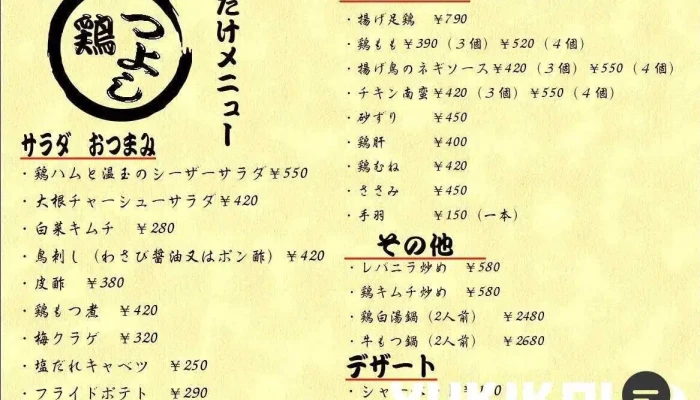 鶏
つよし
だけメニュー
サラダ おつまみ
・鶏ハムと温玉のシーザーサラダ¥550
・大根チャーシューサラダ¥420
・白菜キムチ ¥280
・鳥刺し（わさび醤油又はポン酢）¥420
・皮酢 ¥380
・鶏もつ煮 ¥420
・梅クラゲ ¥320
・塩だれキャベツ ¥250
・フライドポテト ¥290
・揚げ足鶏 ¥790
・鶏もも¥390（３個）¥520（４個）
・揚げ鳥のネギソース¥420（３個）¥550（４個）
・チキン南蛮¥420（３個）¥550（４個）
・砂ずり ¥450
・鶏肝 ¥400
・鶏むね ¥420
・ささみ ¥450
・手羽 ¥150（一本）
その他
・レバニラ炒め ¥580
・鶏キムチ炒め ¥580
・鶏白湯鍋（2人前） ¥2480
・牛もつ鍋（2人前） ¥2680
デザート